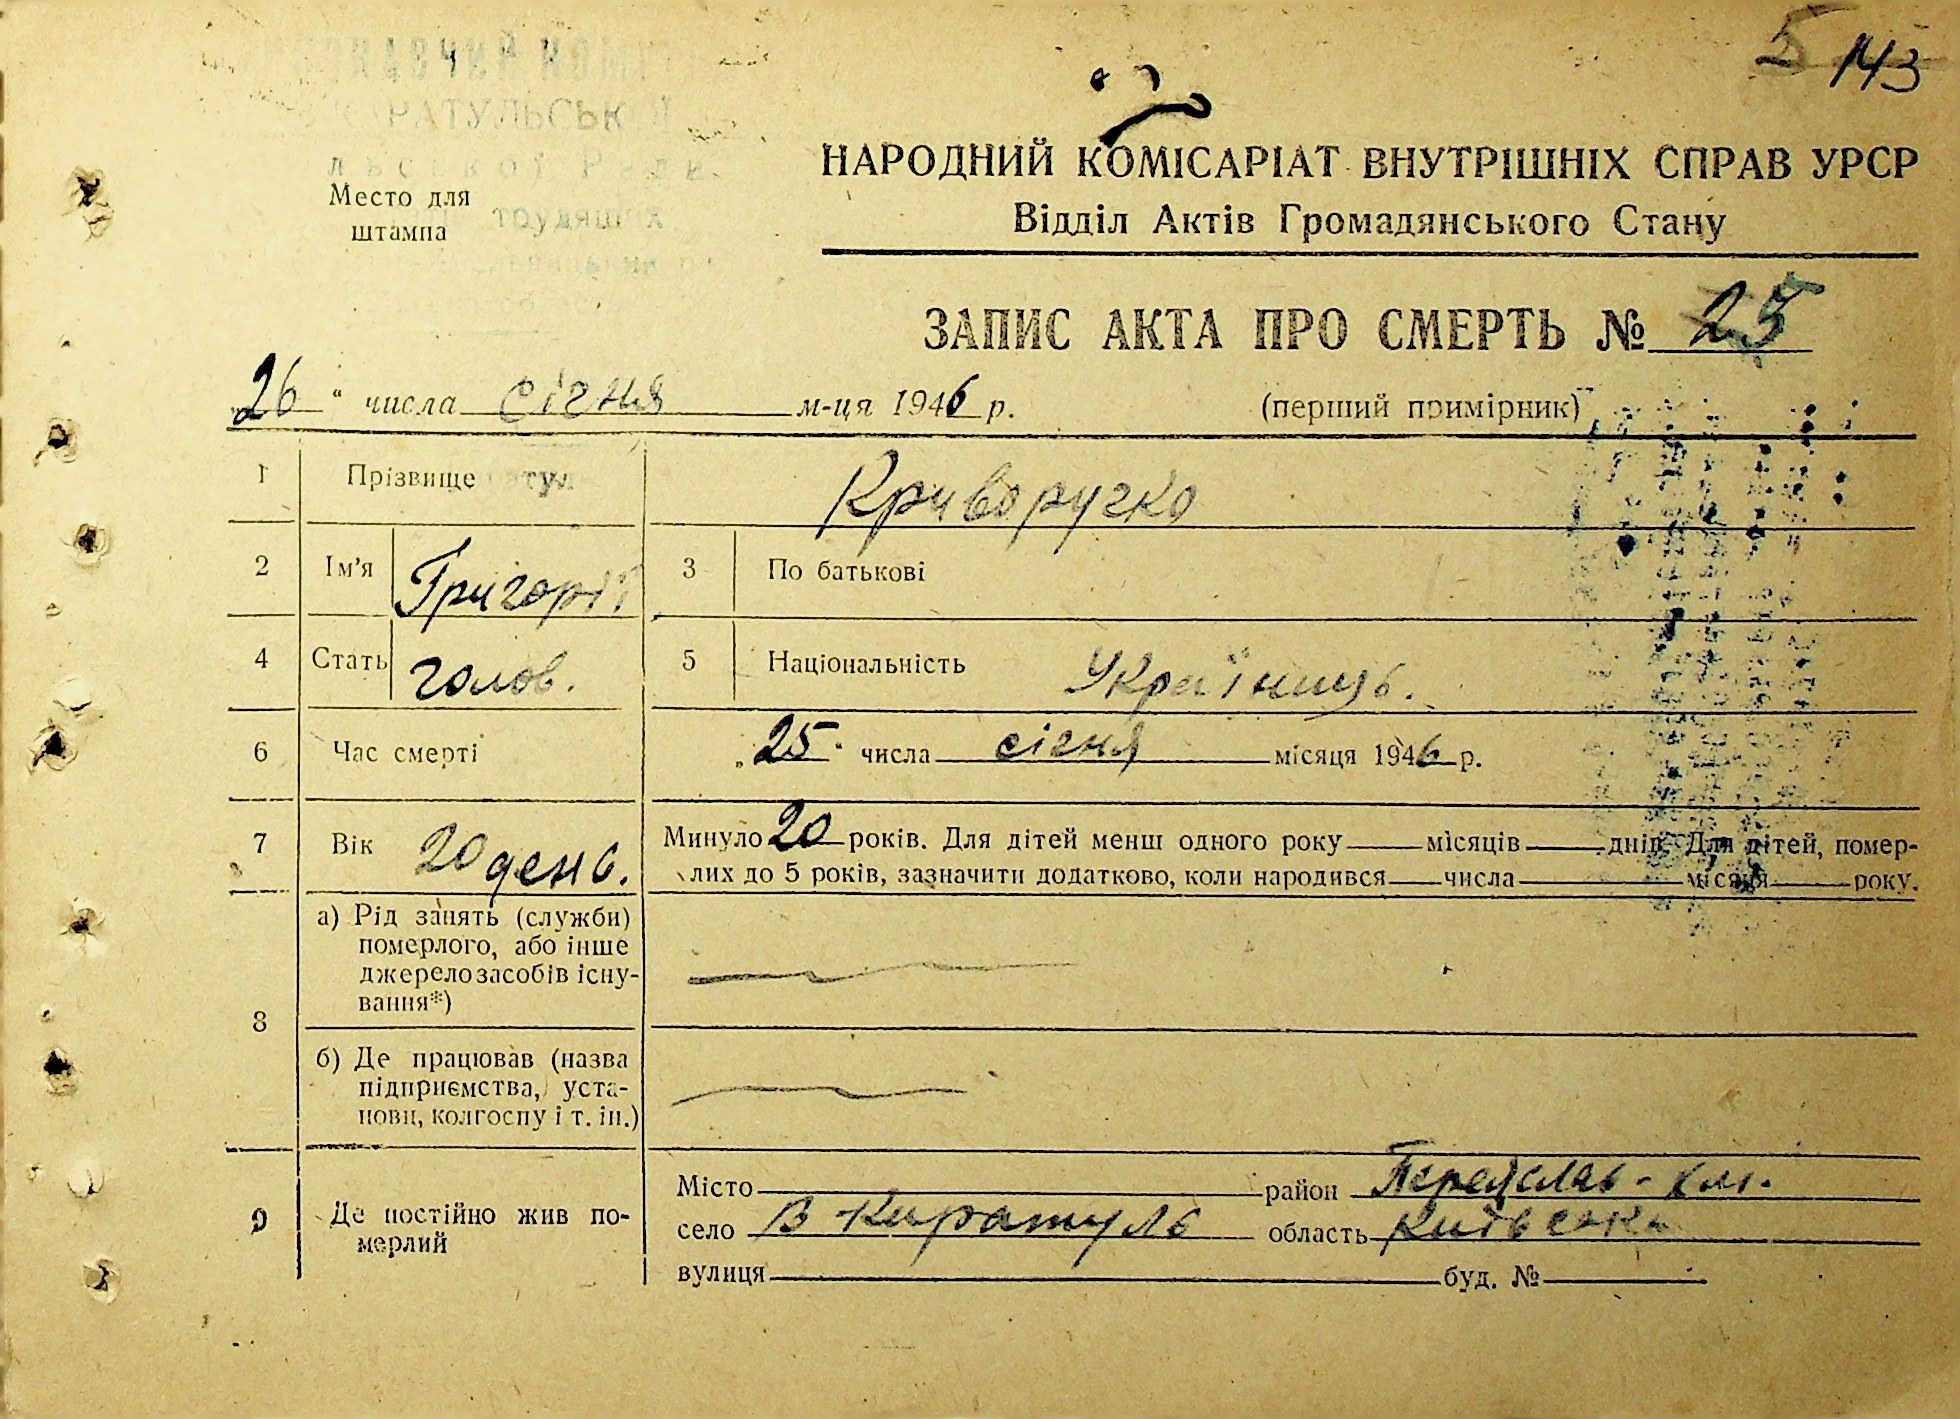 5 143
РАТУЛЬСЬКОЇ
Место для
штампа
трудящих
НАРОДНИЙ КОМІСАРІАТ ВНУТРІШНІХ СПРАВ УРСР
Відділ Актів Громадянського Стану
ЗАПИС АКТА ПРО СМЕРТЬ № 25
„26“ числа січня м-ця 1946 р. (перший примірник)
1 Прізвище Криворучко
2 Ім'я Григорій 3 По батькові
4 Стать чолов. 5 Національність Українць.
6 Час смерті „25“ числа січня місяця 1946 р.
7 Вік 20 день. Минуло 20 років. Для дітей менш одного року місяців днів. Для дітей, помер-
лих до 5 років, зазначити додатково, коли народився числа місяця року.
8 а) Рід занять (служби)
померлого, або інше
джерело засобів існу-
вання*)
б) Де працював (назва
підприємства, уста-
нови, колгоспу і т. ін.)
9 Де постійно жив по-
мерлий
Місто район Переяслав-хм.
село В Каратуль область Київська
вулиця буд. №